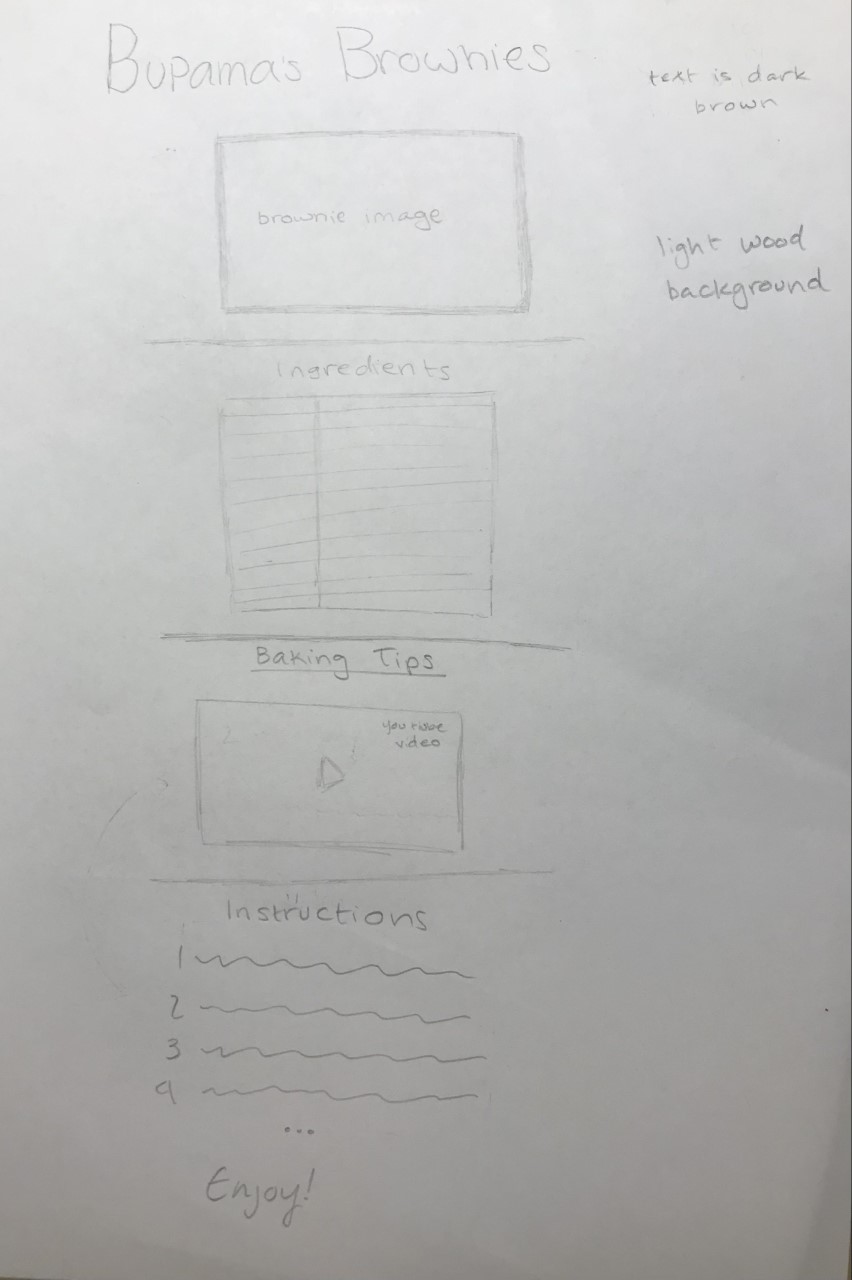 Bupama's Brownies
text is dark
brown
brownie image
light wood
background
Ingredients
Baking Tips
video
Instructions
1
2
3
4
...
Enjoy!